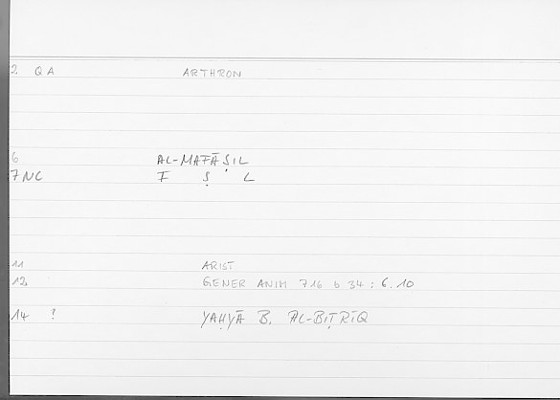 2 QA ARTHRON
6 AL-MAFĀṢIL
7 NC F Ṣ L
11 ARIST
12. GENER ANIM 716 b 34 : 6.10
14 ? YAḤYĀ B. AL-BIṬRĪQ